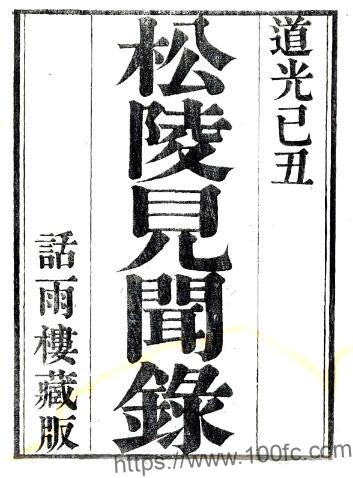 道光己丑
松陵見聞錄
話雨樓藏版
https://www.100fc.com